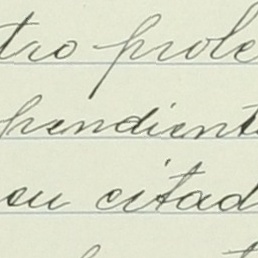 tro prole
pendient
su citad